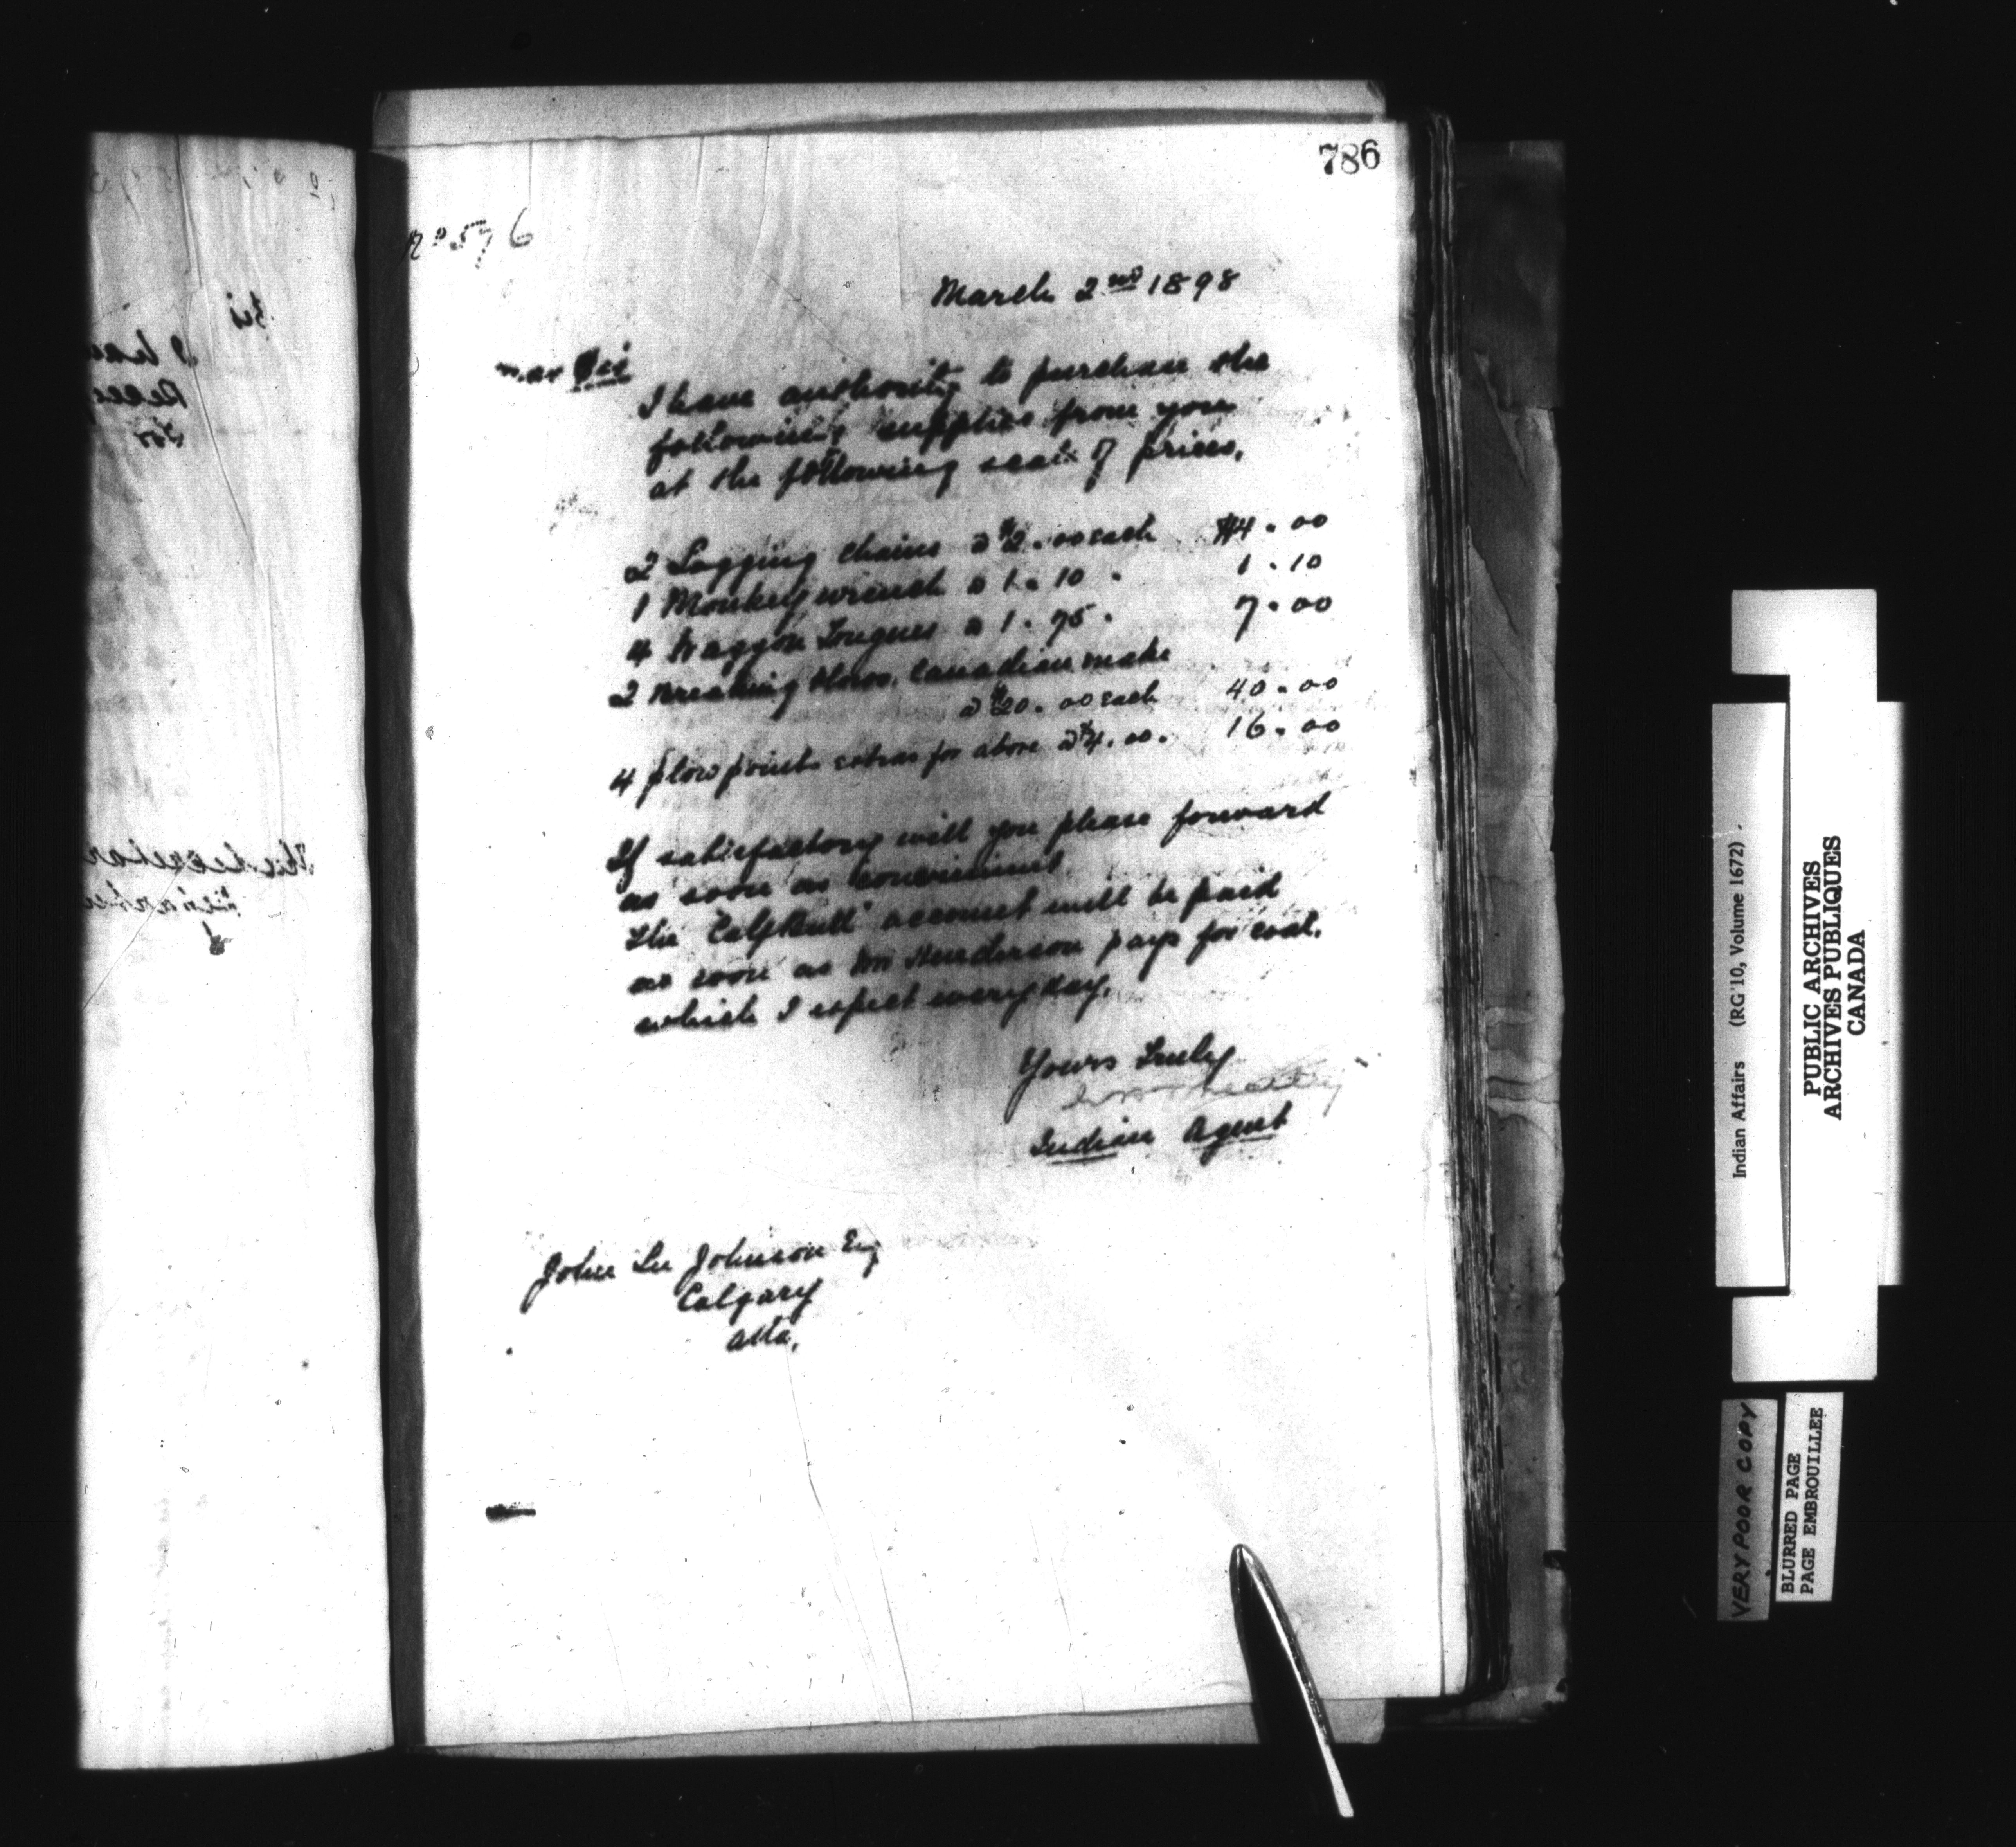 786
No 576
March 2nd 1898
Dear Sir
I have authority to purchase the
following supplies from you
at the following scale of prices.
2 Logging Chains @ $2.00 each $4.00
1 Monkey wrench @ 1.10 . 1.10
4 Waggon Tongues @ 1.75 . 7.00
2 Breaking Plows. Canadian make
@ $20.00 each 40.00
4 plow points extras for above @ $4.00. 16.00
If satisfactory will you please forward
as soon as convenient.
The "Calf Bull" account will be paid
as soon as Wm Henderson pays for coal.
which I expect every day.
Yours Truly
Indian Agent
John Lee Johnson Esq
Calgary
Alta.
Indian Affairs (RG 10, Volume 1672).
PUBLIC ARCHIVES
ARCHIVES PUBLIQUES
CANADA
VERY POOR COPY
BLURRED PAGE
PAGE EMBROUILLEE